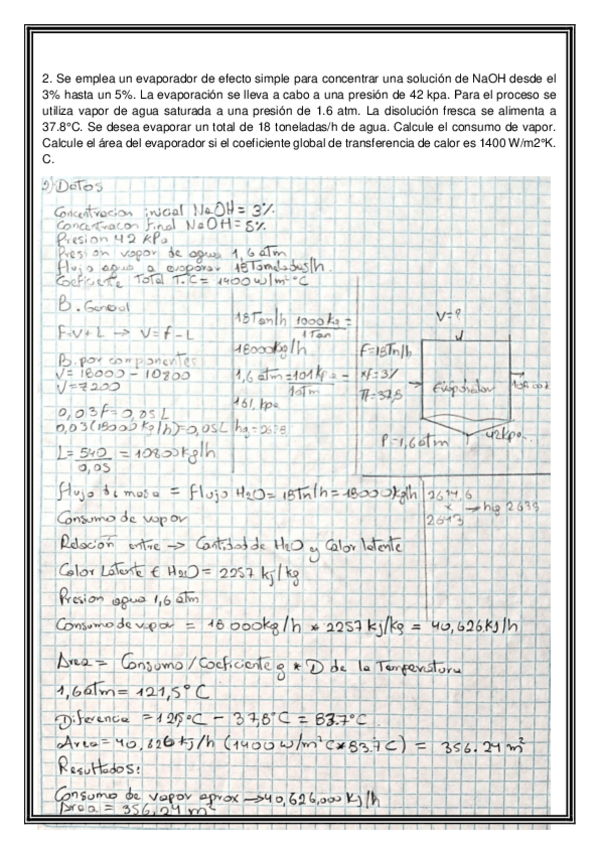 2. Se emplea un evaporador de efecto simple para concentrar una solución de NaOH desde el
3% hasta un 5%. La evaporación se lleva a cabo a una presión de 42 kpa. Para el proceso se
utiliza vapor de agua saturada a una presión de 1.6 atm. La disolución fresca se alimenta a
37.8°C. Se desea evaporar un total de 18 toneladas/h de agua. Calcule el consumo de vapor.
Calcule el área del evaporador si el coeficiente global de transferencia de calor es 1400 W/m2°K.
C.
2) Datos
Concentracion inicial NaOH = 3%
Concentracon final NaOH = 5%
Presion 42 kPa
Presion vapor de agua 1,6 atm
flujo agua a evaporar 18 Toneladas/h
Coeficiente Total T.C = 1400 w/m² °C
B. General
F=V+L → V=F-L
B. por componentes
V= 18000 - 10800
V=7200
0,03F=0,05L
0,03(18000 kg/h)=0,05L
L= 540 / 0,05 = 10800kg/h
18Ton/h 1000kg =
1Ton
18000kg/h
1,6 atm=101kpa =
1atm
161, kpa
V=?
F=18Tn/h
xf=3%
Evaporador
P=1,6atm
42kpa
flujo de masa = flujo H2O=18Tn/h=18000kg/h
2614,6
x → hg 2638
2643
Consumo de vapor
Relación entre → Cantidad de H2O y Calor latente
Calor Latente H2O= 2257 kj/kg
Presion agua 1,6 atm
Consumo de vapor = 18 000kg/h * 2257 kj/kg = 40,626KJ/h
Area = Consumo/Coeficiente g * D de la Temperatura
1,6atm= 121,5°C
Diferencia =121,5°C - 37,8°C = 83.7°C
Area=40,626 kj/h (1400w/m²C*83.7C) = 356.24 m²
Resultados:
Consumo de vapor aprox →40,626,000 KJ/h
Area = 356,24 m²